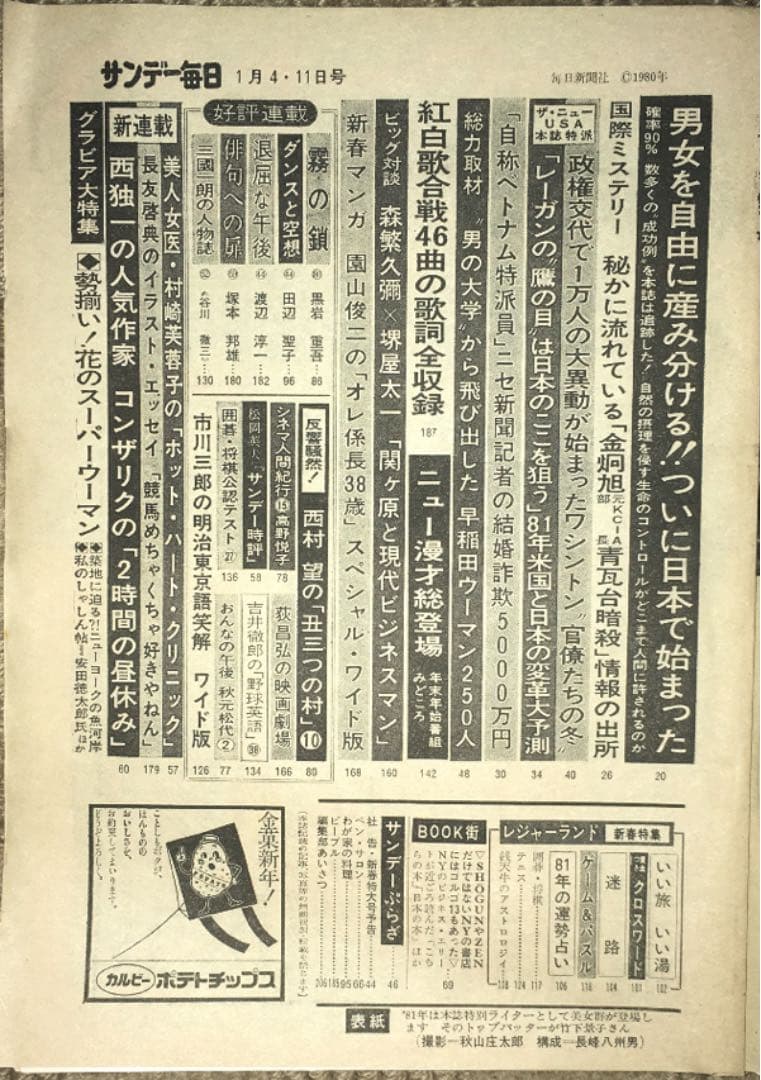 サンデー毎日 1月4・11日号
毎日新聞社 ©1980年
男女を自由に産み分ける!!ついに日本で始まった 20
確率90% 数多くの“成功例”を本誌は追跡した!自然の摂理を侵す生命のコントロールがどこまで人間に許されるのか
国際ミステリー 秘かに流れている「金炯旭元KCIA部長青瓦台暗殺」情報の出所 26
ザ・ニューUSA本誌特派
政権交代で1万人の大異動が始まったワシントン“官僚たちの冬” 40
「レーガンの“鷹の目”は日本のここを狙う」81年米国と日本の変革大予測 34
「自称ベトナム特派員」ニセ新聞記者の結婚詐欺5000万円 30
総力取材 “男の大学”から飛び出した 早稲田ウーマン250人 48
紅白歌合戦46曲の歌詞全収録 187
ニュー漫才総登場 年末年始番組みどころ 142
ビッグ対談 森繁久彌×堺屋太一 「関ヶ原と現代ビジネスマン」 160
新春マンガ 園山俊二の「オレ係長38歳」スペシャル・ワイド版 168
好評連載
霧の鎖 黒岩重吾 86
ダンスと空想 田辺聖子 96
退屈な午後 渡辺淳一 182
俳句への扉 塚本邦雄 180
三國一朗の人物誌 谷川徹三 130
反響騒然! 西村望の「丑三つの村」⑩ 80
シネマ人間紀行⑮高野悦子 78
荻昌弘の映画劇場 166
松岡英夫「サンデー時評」 58
吉井徹郎の「野球英語」㊳ 134
囲碁・将棋公認テスト㉗ 136
おんなの午後 秋元松代② 77
市川三郎の明治東京語笑解 ワイド版 126
新連載
美人女医・村崎芙蓉子の「ホット・ハート・クリニック」 57
長友啓典のイラスト・エッセイ「競馬めちゃくちゃ好きやねん」 179
西独一の人気作家 コンザリクの「2時間の昼休み」 60
グラビア大特集
◆勢揃い!花のスーパーウーマン
◆築地に迫る?!ニューヨークの魚河岸
◆私のしゃしん帖=安田徳太郎氏ほか
レジャーランド 新春特集
いい旅 いい湯 102
クロスワード 101
迷路 104
ゲーム&パズル 118
81年の運勢占い 106
囲碁・将棋 117
テニス 124
銭天牛のアストロロジイ
BOOK街
▽SHOGUNやZENだけではないNYの書店にはゴルゴ13もあった▽NYのビジネス・エリートが近ごろ読んだ「こちらの本」「日本の本」ほか 69
サンデーぷらざ 46
社告・新春特大号予告 44
ペン・サロン 66
わが家の料理 95
ピープル 185
編集部あいさつ 206
金菓新年!
カルビー ポテトチップス
表紙
'81年は本誌特別ライターとして美女群が登場します そのトップバッターが竹下景子さん
(撮影―秋山庄太郎 構成―長峰八州男)